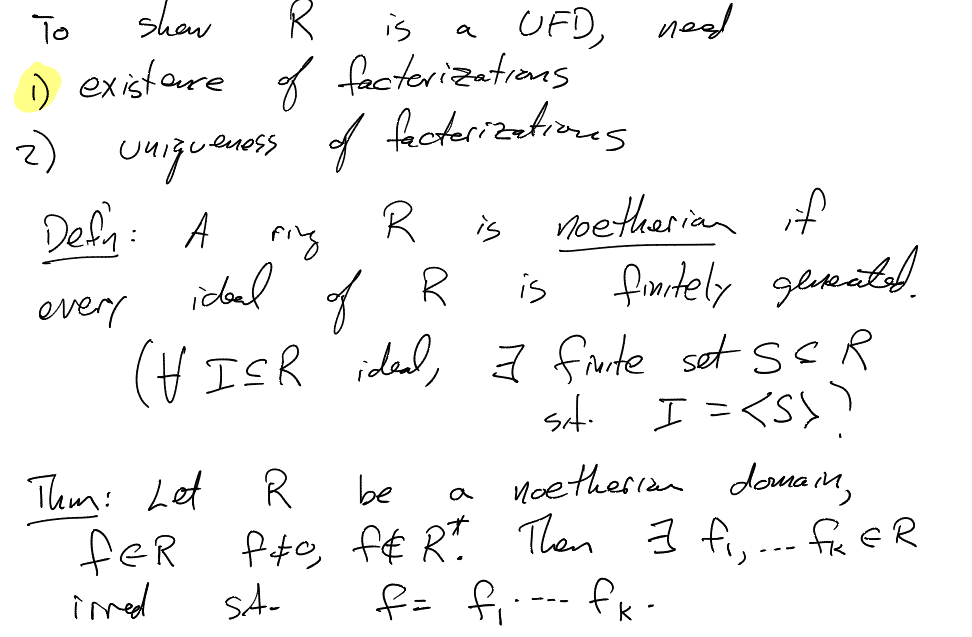 To show R is a UFD, need
1) existence of factorizations
2) uniqueness of factorizations
Def'n: A ring R is noetherian if
every ideal of R is finitely generated.
(∀ I ⊆ R ideal, ∃ finite set S ⊆ R
s.t. I = <S>)
Thm: Let R be a noetherian domain,
f ∈ R f ≠ 0, f ∉ R*. Then ∃ f₁, ... fₖ ∈ R
irred s.t. f = f₁ ···· fₖ.